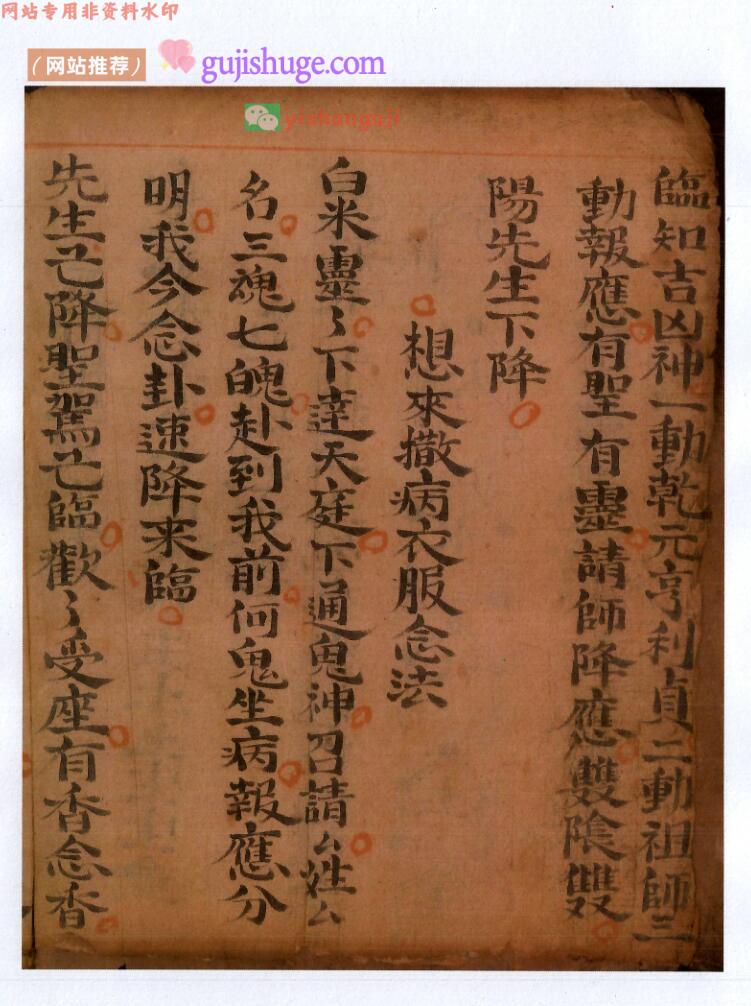 网站专用非资料水印
（网站推荐） gujishuge.com
yishanguji
臨知吉凶神一動乾元亨利貞二動祖師三
動報應有聖有靈請師降應雙陰雙
陽先生下降
想來撒病衣服念法
白米靈〻下達天庭下通鬼神召請厶姓厶
名三魂七魄赴到我前何鬼坐病報應分
明我今念卦速降来臨
先生亡降聖駕亡臨歡〻受座有香念香